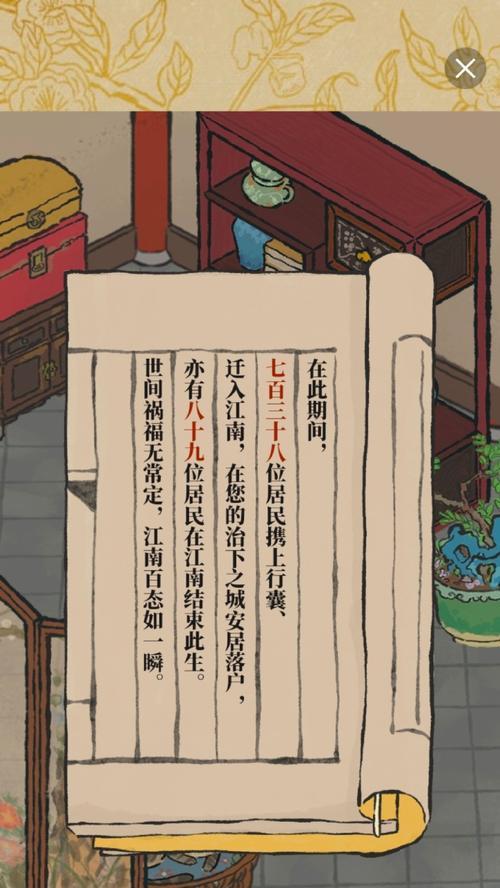 在此期间，
七百三十八位居民携上行囊、
迁入江南，在您的治下之城安居落户，
亦有八十九位居民在江南结束此生。
世间祸福无常定，江南百态如一瞬。